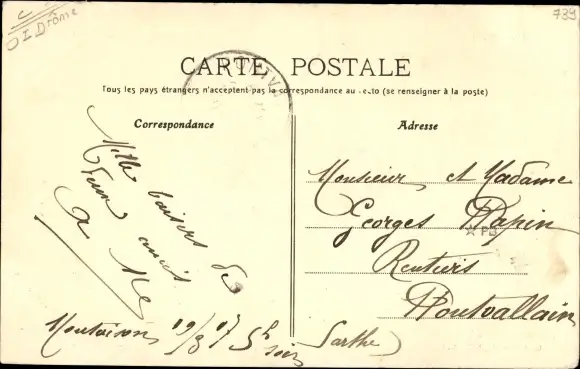 OI Drôme
739
CARTE POSTALE
Tous les pays étrangers n'acceptent pas la correspondance au recto (se renseigner à la poste)
Correspondance
Adresse
Mille baisers de
amis
Montoison 19/3 07 5h soir
Monsieur et Madame
Georges Papin
Rentiers
Pontvallain
Sarthe